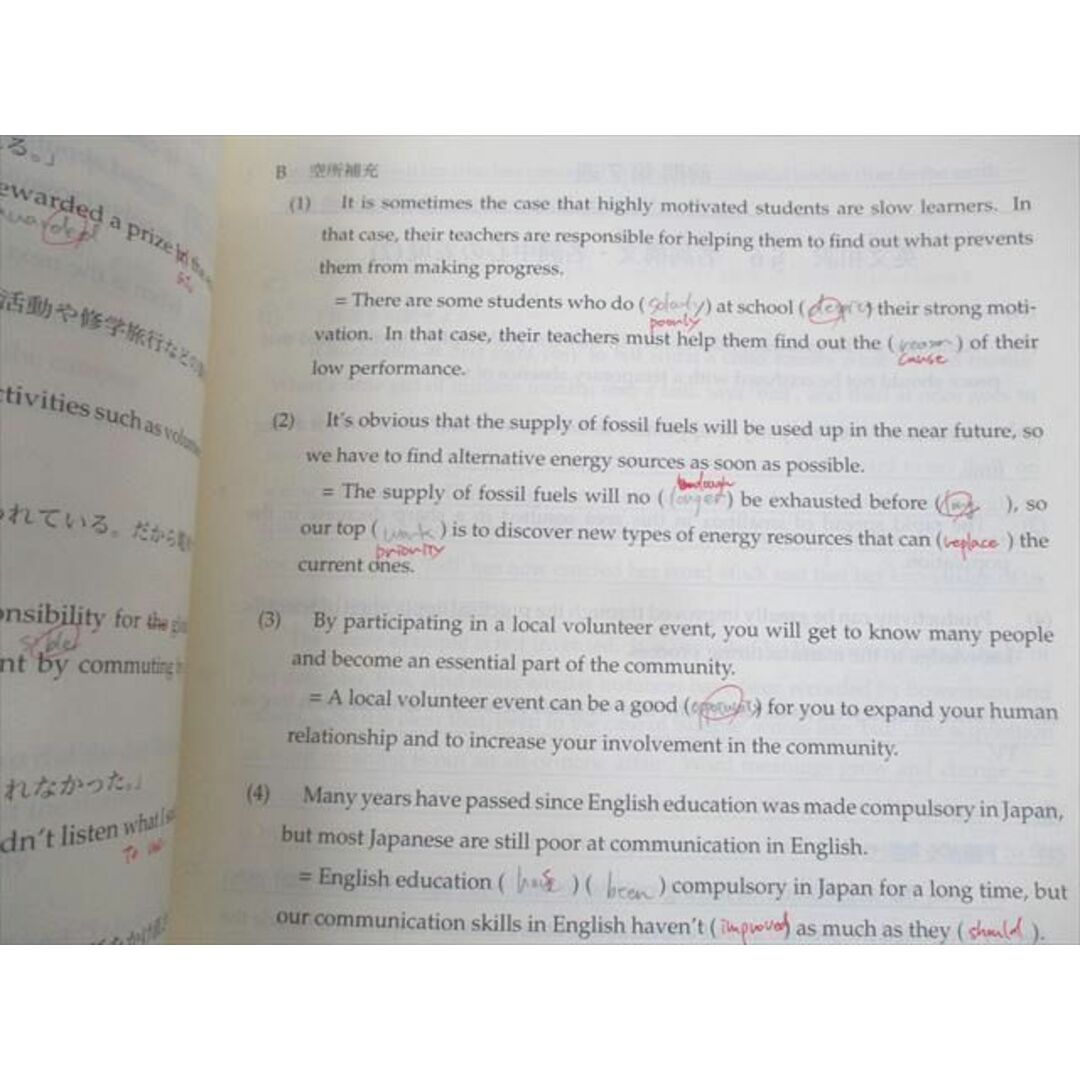 る。」
ewarded a prize
活動や修学旅行などの
ctivities such as
られている。だから
onsibility for the
nt by commuting
れなかった。」
dn't listen what
To me
B 空所補充
(1) It is sometimes the case that highly motivated students are slow learners. In
that case, their teachers are responsible for helping them to find out what prevents
them from making progress.
= There are some students who do ( ) at school ( ) their strong moti-
poorly
vation. In that case, their teachers must help them find out the (reason) of their
cause
low performance.
(2) It's obvious that the supply of fossil fuels will be used up in the near future, so
we have to find alternative energy sources as soon as possible.
= The supply of fossil fuels will no (longer) be exhausted before (long), so
our top (work) is to discover new types of energy resources that can (replace) the
priority
current ones.
(3) By participating in a local volunteer event, you will get to know many people
and become an essential part of the community.
= A local volunteer event can be a good (opportunity) for you to expand your human
relationship and to increase your involvement in the community.
(4) Many years have passed since English education was made compulsory in Japan,
but most Japanese are still poor at communication in English.
= English education ( has ) ( been ) compulsory in Japan for a long time, but
our communication skills in English haven't (improved) as much as they (should).